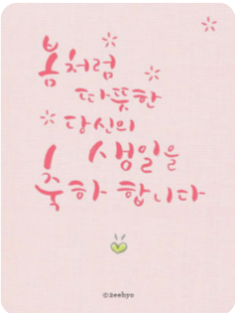 봄처럼
따뜻한
당신의
생일을
축하합니다
©zeehyo